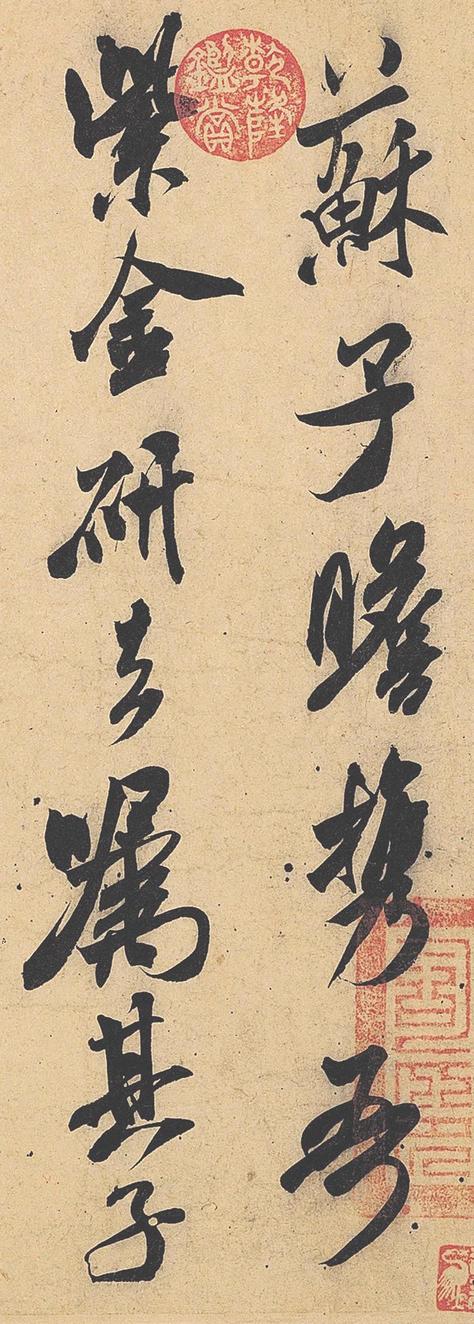 蘇子瞻携吾
紫金研去嘱其子
乾隆鑑賞